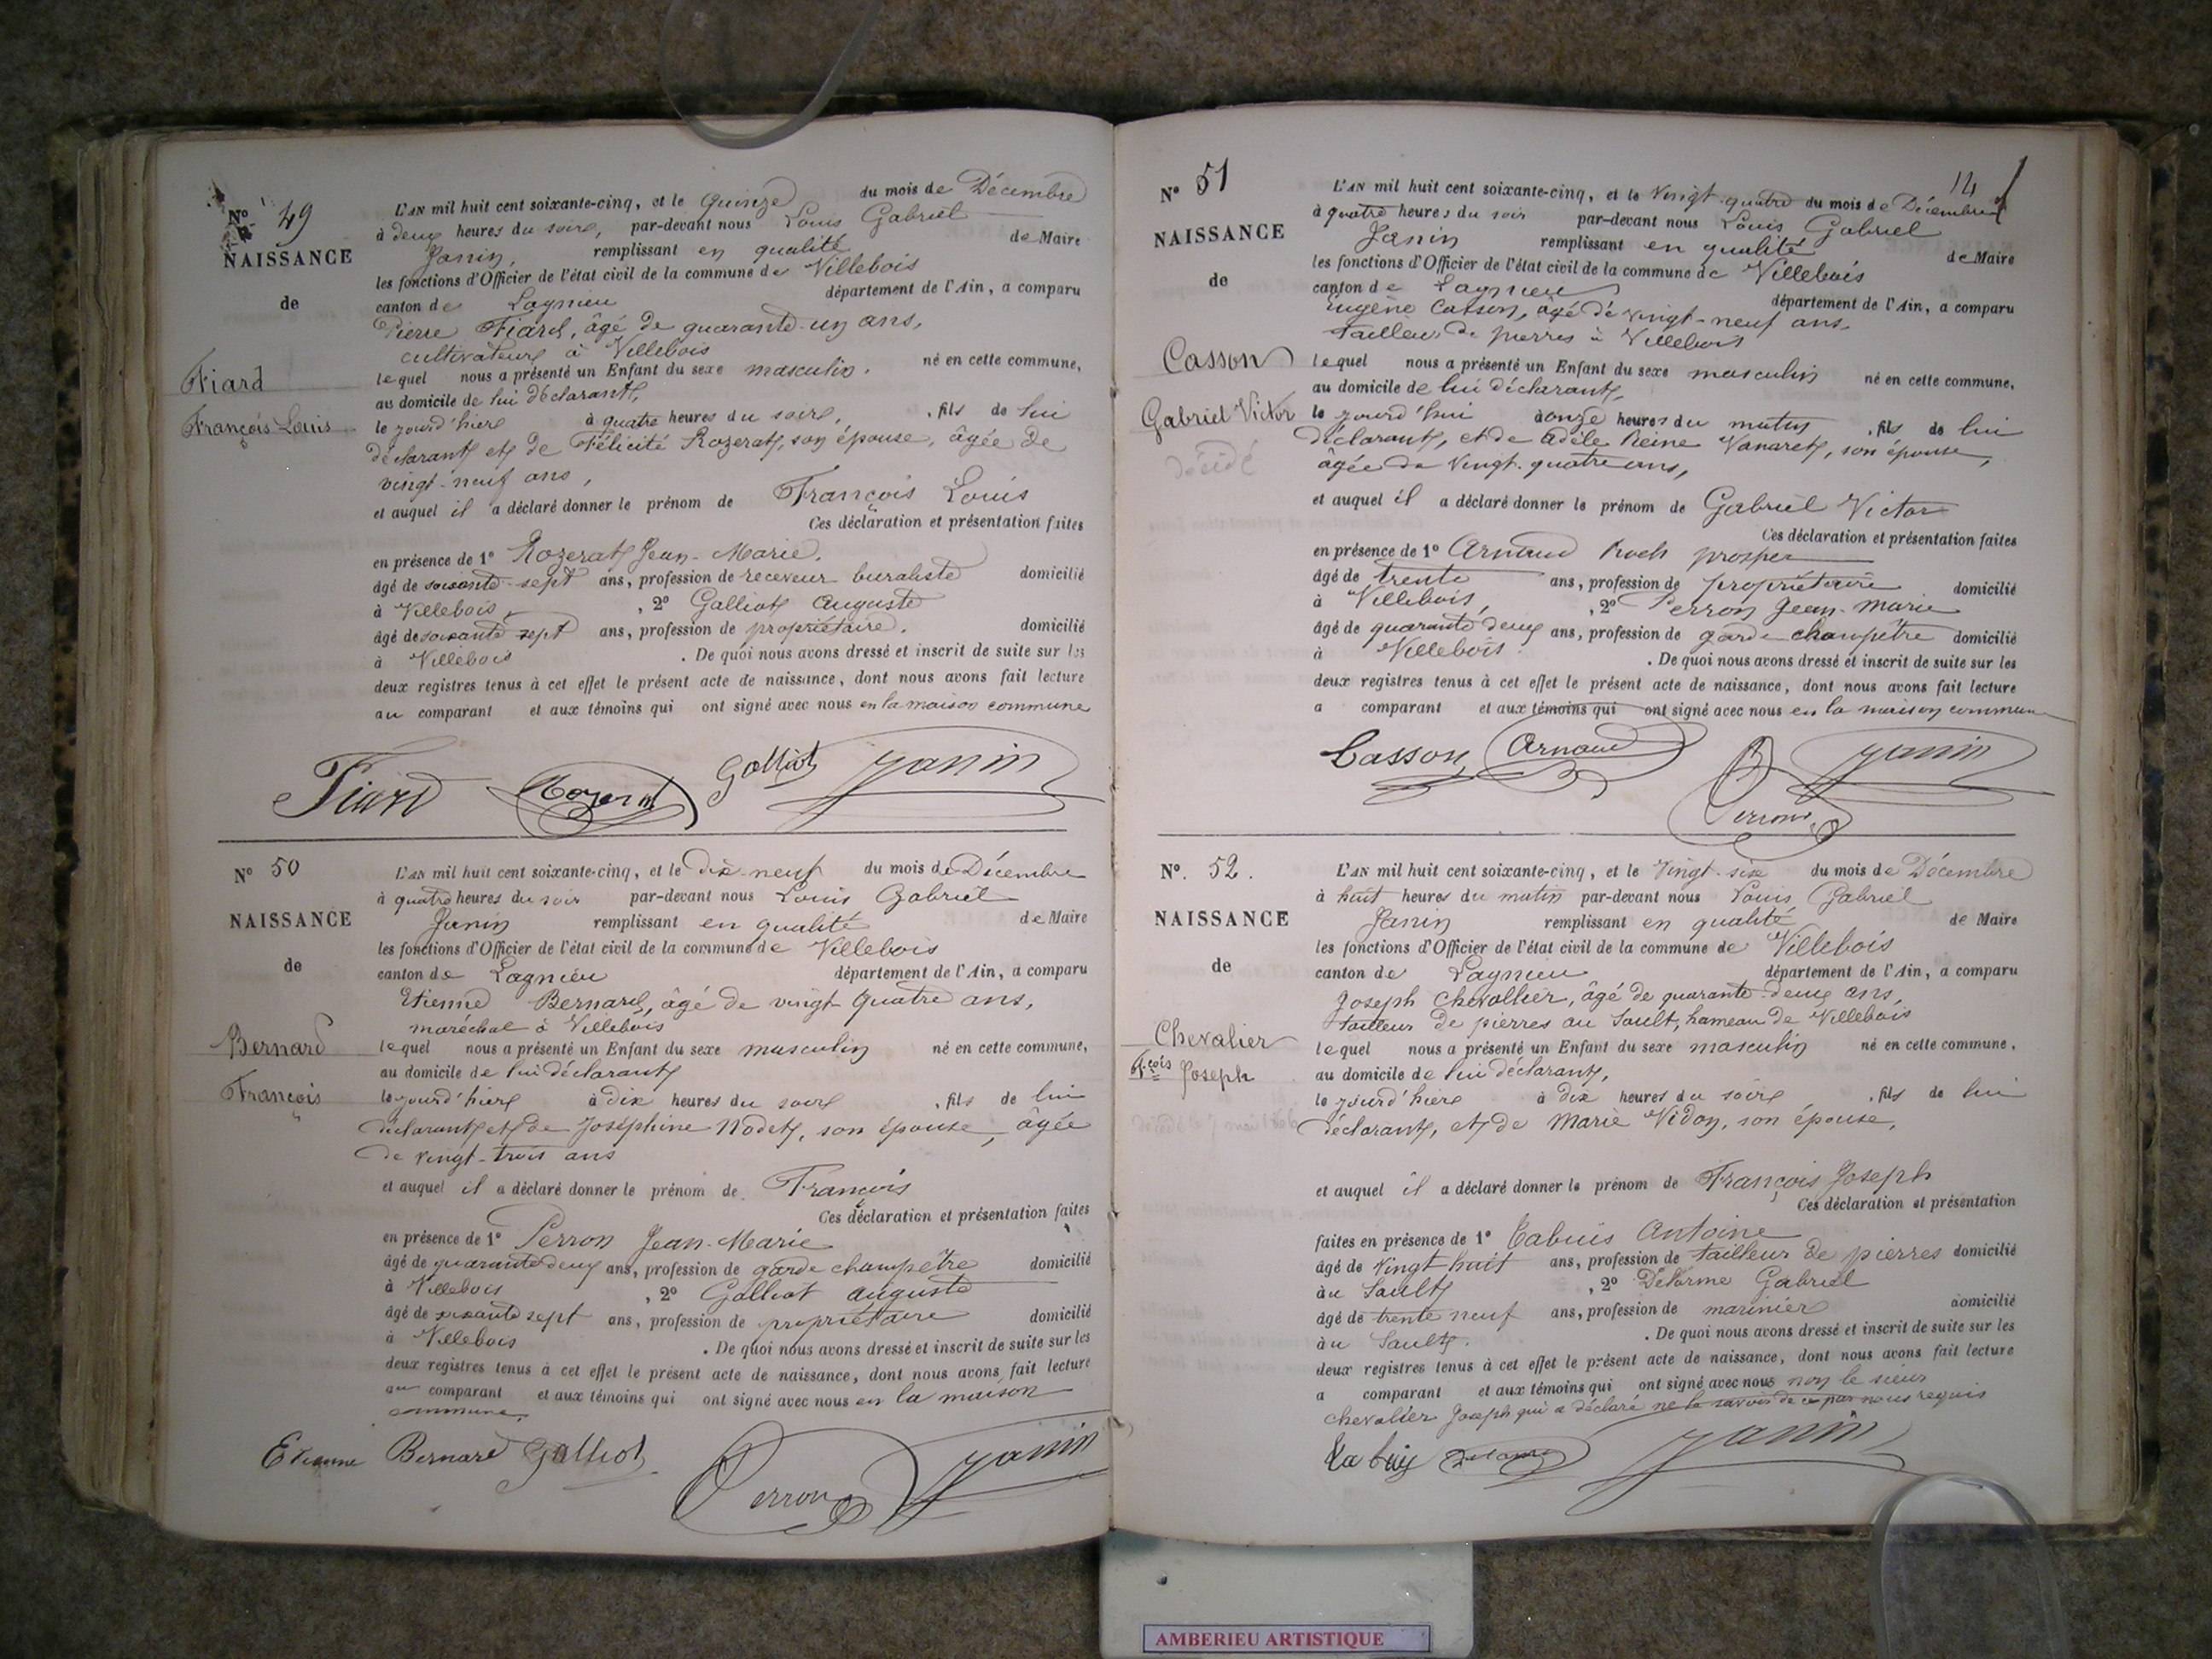 N° 49
NAISSANCE
de
Fiard
François Louis
L'AN mil huit cent soixante-cinq, et le Quinze du mois de Décembre
à deux heures du soir, par-devant nous Louis Gabriel
Janin, remplissant en qualité de Maire
les fonctions d'Officier de l'état civil de la commune de Villebois
canton de Lagnieu département de l'Ain, a comparu
Pierre Fiard, âgé de quarante-un ans,
cultivateur à Villebois
lequel nous a présenté un Enfant du sexe masculin, né en cette commune,
au domicile de lui déclarant,
le jourd'hier à quatre heures du soir, fils de lui
déclarant et de Félicité Rozerat, son épouse, âgée de
vingt-neuf ans,
et auquel il a déclaré donner le prénom de François Louis
Ces déclaration et présentation faites
en présence de 1° Rozerat Jean-Marie,
âgé de soixante-sept ans, profession de receveur buraliste domicilié
à Villebois, , 2° Galliot Auguste
âgé de soixante sept ans, profession de propriétaire, domicilié
à Villebois . De quoi nous avons dressé et inscrit de suite sur les
deux registres tenus à cet effet le présent acte de naissance, dont nous avons fait lecture
au comparant et aux témoins qui ont signé avec nous en la maison commune
Fiard Rozerat Galliot Janin
N° 50
NAISSANCE
de
Bernard
François
L'AN mil huit cent soixante-cinq, et le dix-neuf du mois de Décembre
à quatre heures du soir par-devant nous Louis Gabriel
Janin remplissant en qualité de Maire
les fonctions d'Officier de l'état civil de la commune de Villebois
canton de Lagnieu département de l'Ain, a comparu
Etienne Bernard, âgé de vingt quatre ans,
maréchal à Villebois
lequel nous a présenté un Enfant du sexe masculin né en cette commune,
au domicile de lui déclarant
le jourd'hier à dix heures du soir , fils de lui
déclarant et de Joséphine Nodet, son épouse, âgée
de vingt-trois ans
et auquel il a déclaré donner le prénom de François
Ces déclaration et présentation faites
en présence de 1° Perron Jean-Marie
âgé de quarante deux ans, profession de garde champêtre domicilié
à Villebois , 2° Galliot Auguste
âgé de soixante sept ans, profession de propriétaire domicilié
à Villebois . De quoi nous avons dressé et inscrit de suite sur les
deux registres tenus à cet effet le présent acte de naissance, dont nous avons fait lecture
au comparant et aux témoins qui ont signé avec nous en la maison
commune.
Etienne Bernard Galliot Perron Janin
14
N° 51
NAISSANCE
de
Casson
Gabriel Victor
décédé
L'AN mil huit cent soixante-cinq, et le Vingt-quatre du mois de Décembre
à quatre heures du soir par-devant nous Louis Gabriel
Janin remplissant en qualité de Maire
les fonctions d'Officier de l'état civil de la commune de Villebois
canton de Lagnieu département de l'Ain, a comparu
Eugène Casson, âgé de vingt-neuf ans,
tailleur de pierres à Villebois
lequel nous a présenté un Enfant du sexe masculin né en cette commune,
au domicile de lui déclarant,
le jourd'hui à onze heures du matin , fils de lui
déclarant, et de Adèle Reine Vanaret, son épouse,
âgée de vingt-quatre ans,
et auquel il a déclaré donner le prénom de Gabriel Victor
Ces déclaration et présentation faites
en présence de 1° Arnaud Roch prosper
âgé de trente ans, profession de propriétaire domicilié
à Villebois, , 2° Perron Jean-Marie
âgé de quarante deux ans, profession de garde champêtre domicilié
à Villebois . De quoi nous avons dressé et inscrit de suite sur les
deux registres tenus à cet effet le présent acte de naissance, dont nous avons fait lecture
a comparant et aux témoins qui ont signé avec nous en la maison commune
Casson Arnaud Perron Janin
N°. 52.
NAISSANCE
de
Chevalier
Fçois Joseph
L'AN mil huit cent soixante-cinq, et le Vingt-six du mois de Décembre
à huit heures du matin par-devant nous Louis Gabriel
Janin remplissant en qualité de Maire
les fonctions d'Officier de l'état civil de la commune de Villebois
canton de Lagnieu département de l'Ain, a comparu
Joseph Chevallier, âgé de quarante-deux ans,
tailleur de pierres au Sault, hameau de Villebois
lequel nous a présenté un Enfant du sexe masculin né en cette commune,
au domicile de lui déclarant,
le jourd'hier à dix heures du soir , fils de lui
déclarant, et de Marie Vidon, son épouse,
et auquel il a déclaré donner le prénom de François Joseph
Ces déclaration et présentation
faites en présence de 1° Cabuis Antoine
âgé de vingt huit ans, profession de tailleur de pierres domicilié
àu Sault , 2° Delorme Gabriel
âgé de trente neuf ans, profession de marinier domicilié
àu Sault. . De quoi nous avons dressé et inscrit de suite sur les
deux registres tenus à cet effet le présent acte de naissance, dont nous avons fait lecture
a comparant et aux témoins qui ont signé avec nous non le sieur
chevalier Joseph qui a déclaré ne le savoir de ce par nous requis
Janin
AMBERIEU ARTISTIQUE